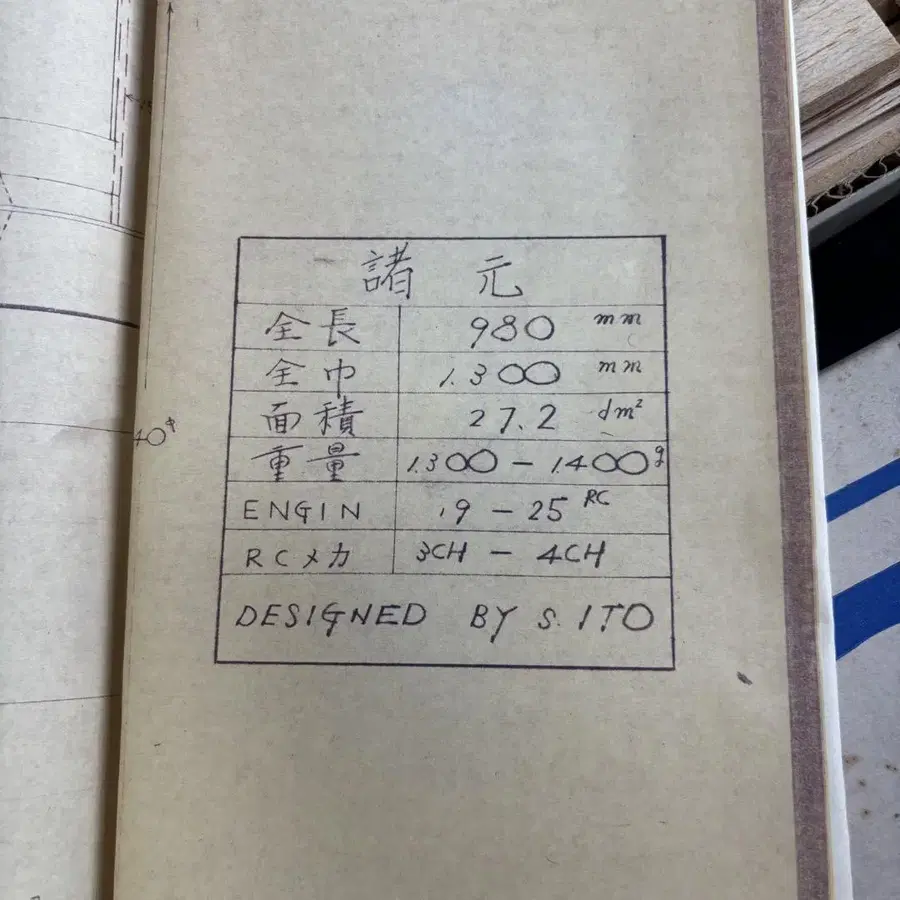 諸元
全長 980 mm
全巾 1.300 mm
面積 27.2 dm²
重量 1.300 - 1.400g
ENGIN 19 - 25 RC
RCメカ 3CH - 4CH
DESIGNED BY S. ITO
40φ